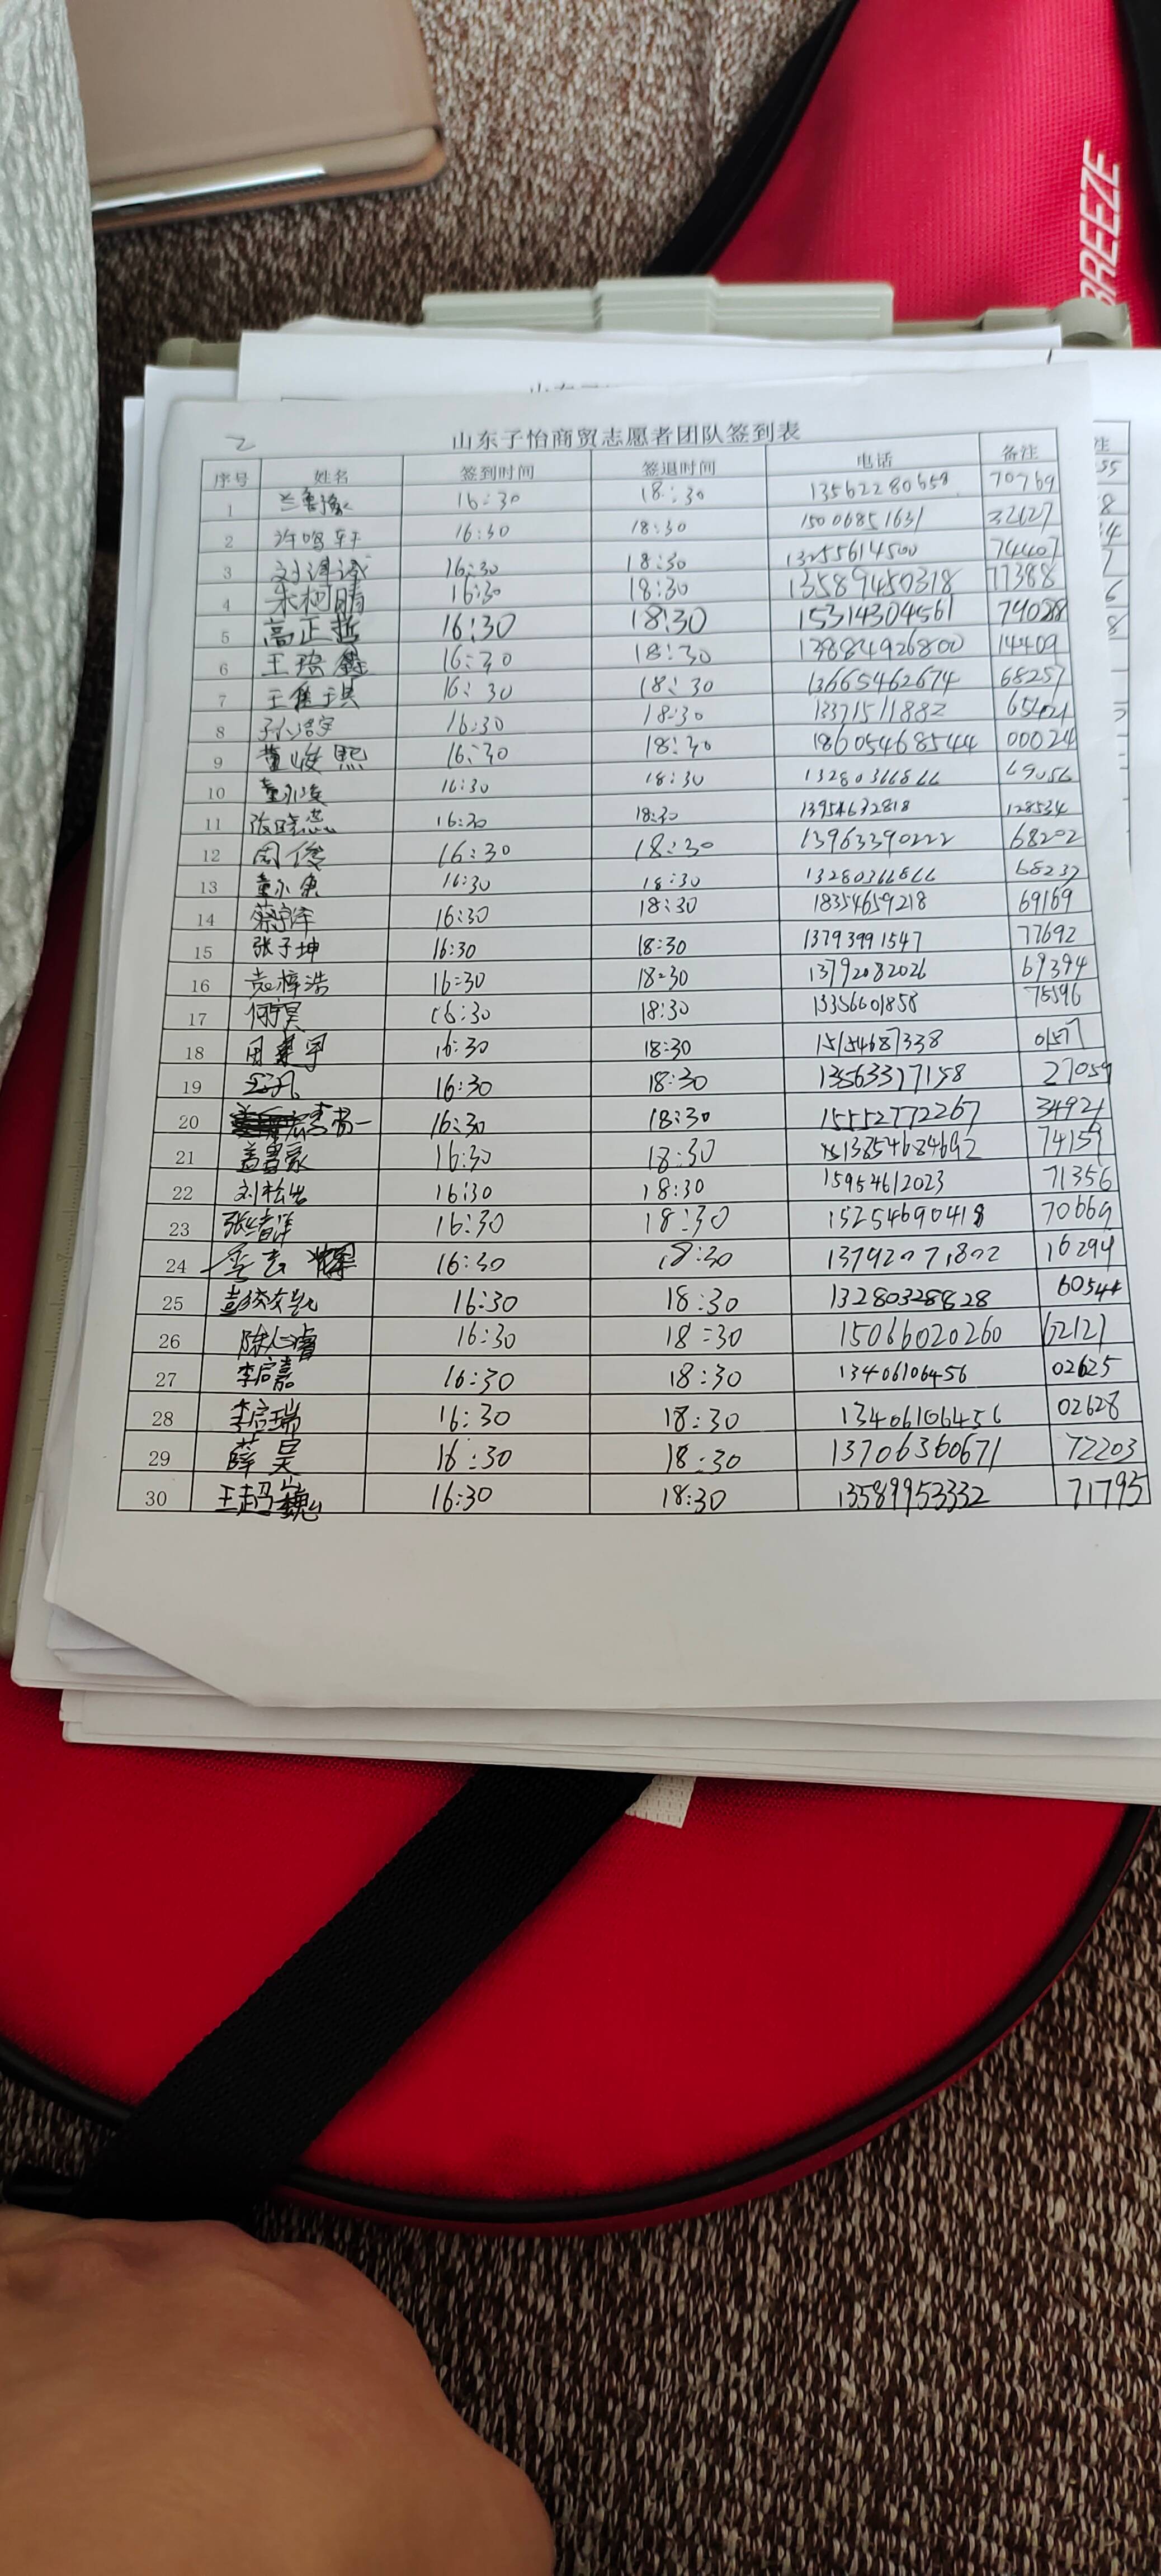 BREEZE
2
山东子怡商贸志愿者团队签到表
序号 姓名 签到时间 签退时间 电话 备注
1 16:30 18:30 13562280658 70769
2 许鸣轩 16:30 18:30 15006851631 32627
3 刘泽诚 16:30 18:30 13255614500 74407
4 朱柯晴 16:30 18:30 13589450318 77388
5 高正哲 16:30 18:30 15314304561 74028
6 王珞鑫 16:30 18:30 13884926800 14409
7 王佳琪 16:30 18:30 13665462674 68257
8 孙浩宇 16:30 18:30 13371511882
9 董峻熙 16:30 18:30 18605468544 00024
10 董永浚 16:30 18:30 13280366866 69056
11 张晓燕 16:30 18:30 13954632818 128534
12 周俊 16:30 18:30 13963390222 68202
13 董永康 16:30 18:30 13280366866 68237
14 蔡宇泽 16:30 18:30 18354659218 69169
15 张子坤 16:30 18:30 13793991547 77692
16 袁梓浩 16:30 18:30 13792082026 69394
17 何宇昊 16:30 18:30 13356601858 75596
18 田建宇 16:30 18:30 15154687338 01577
19 16:30 18:30 13563377158 27059
20 李书一 16:30 18:30 15552772267 34921
21 盖昌家 16:30 18:30 13854684692 74159
22 刘松岩 16:30 18:30 15954612023 71356
23 张绪洋 16:30 18:30 15254690418 70669
24 16:30 18:30 13792071802 16294
25 彭文凯 16:30 18:30 13280328828 60544
26 陈心睿 16:30 18:30 15066020260 62121
27 李启嘉 16:30 18:30 13406106456 02625
28 李启瑞 16:30 18:30 13406106456 02628
29 薛昊 16:30 18:30 13706360671 72203
30 王超巍 16:30 18:30 13589953332 71795